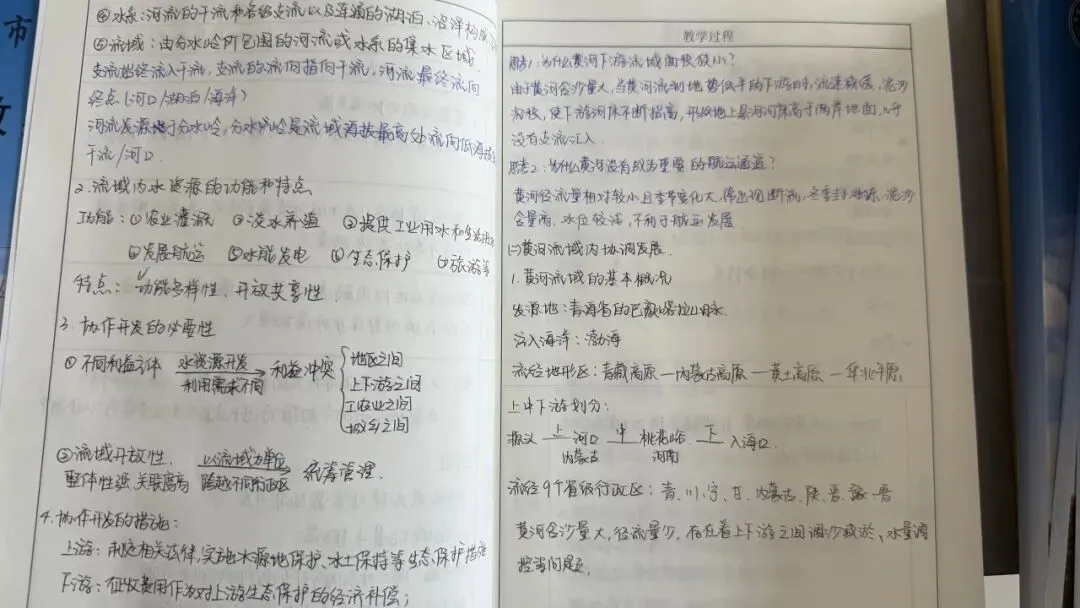 ④水系：河流的干流和各级支流以及连通的湖泊、沼泽构成
⑤流域：由分水岭所包围的河流或水系的集水区域.
支流始终流入干流，支流的流向指向干流，河流最终流向
终点(河口/湖泊/海洋)
河流发源于分水岭，分水岭是流域海拔最高处流向低海拔
干流/河口.
2.流域内水资源的功能和特点
功能：①农业灌溉 ②淡水养殖 ③提供工业用水和生活用水
④发展航运 ⑤水能发电 ⑥生态保护 ⑦旅游等
特点：功能多样性、开放共享性
3.协作开发的必要性
①不同利益主体 水资源开发 利用需求不同 利益冲突
地区之间
上下游之间
工农业之间
城乡之间
②流域开放性、 以流域为单位
整体性强，关联度高 跨越不同行政区 统筹管理.
4.协作开发的措施：
上游：制定相关法律，实施水源地保护、水土保持等生态保护措施
下游：征收费用作为对上游生态保护的经济补偿；
教学过程
思考1：为什么黄河下游流域面积狭小？
由于黄河含沙量大，当黄河流到地势低平的下游时，流速减缓，泥沙
沉积，使下游河床不断抬高，形成地上悬河河床高于两岸地面，几乎
没有支流汇入
思考2：为什么黄河没有成为重要的航运通道？
黄河径流量相对较小且季节变化大，常出现断流，冬季封冻，泥沙
含量高，水位较浅，不利于航运发展
㈡黄河流域内协调发展.
1.黄河流域的基本概况
发源地：青海省的巴颜喀拉山脉.
注入海洋：渤海
流经地形区：青藏高原—内蒙古高原—黄土高原—华北平原.
上中下游划分：
源头 上 河口 中 桃花峪 下 入海口.
内蒙古 河南
流经9个省级行政区：青、川、宁、甘、内蒙古、陕、晋、豫、鲁
黄河含沙量大，径流量少，存在着上下游之间调沙减淤、水量调
控等问题.